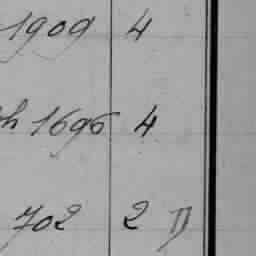 1909 4
h 1696 4
702 2 D